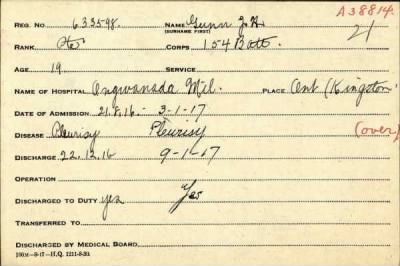 A38814.
REG. NO. 633598. NAME Gunn J.H.
(SURNAME FIRST) 21
RANK Pte CORPS 154 Batt.
AGE 19 SERVICE
NAME OF HOSPITAL Ongwanada Mil. PLACE Ont (Kingston
DATE OF ADMISSION 21.8.16.- 3-1-17
DISEASE Pleurisy Pleurisy (over)
DISCHARGE 22.12.16 9-1-17
OPERATION
DISCHARGED TO DUTY yes Yes
TRANSFERRED TO
DISCHARGED BY MEDICAL BOARD